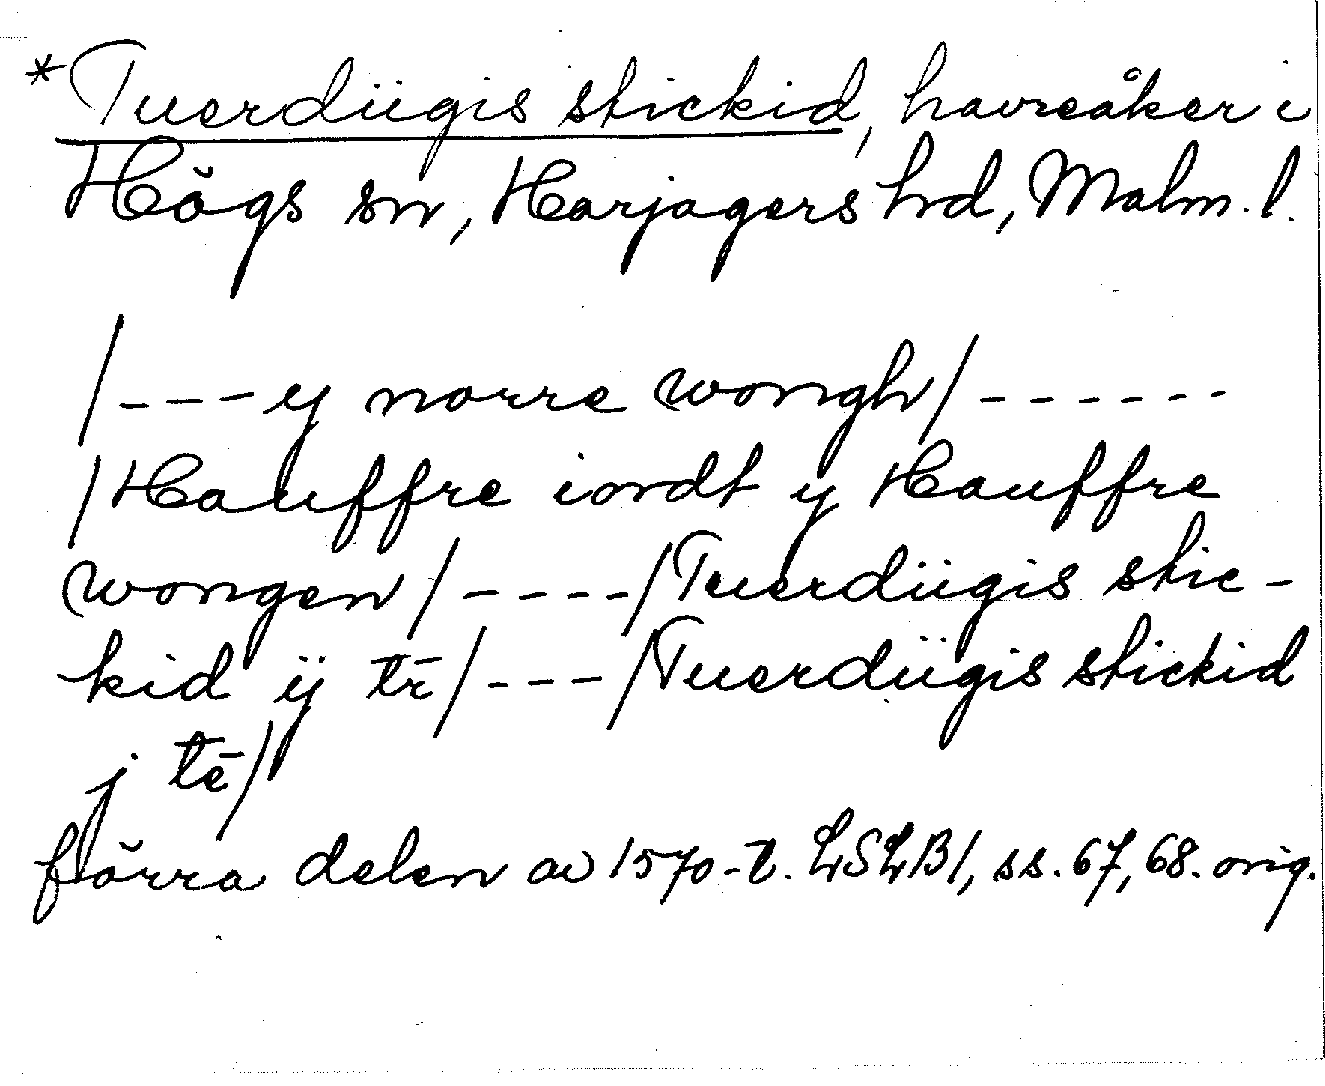 *Tuerdiigis stickid, havreåker i
Högs sn, Harjagers hd, Malm. l.
/---y norre wongh/------
/Hauffre iordt y Hauffre
wongen/----/Tuerdiigis stic-
kid ÿ tr̄/---/Tuerdiigis stickid
j tē/
förra delen av 1570-t. LSLB1, ss. 67, 68. orig.